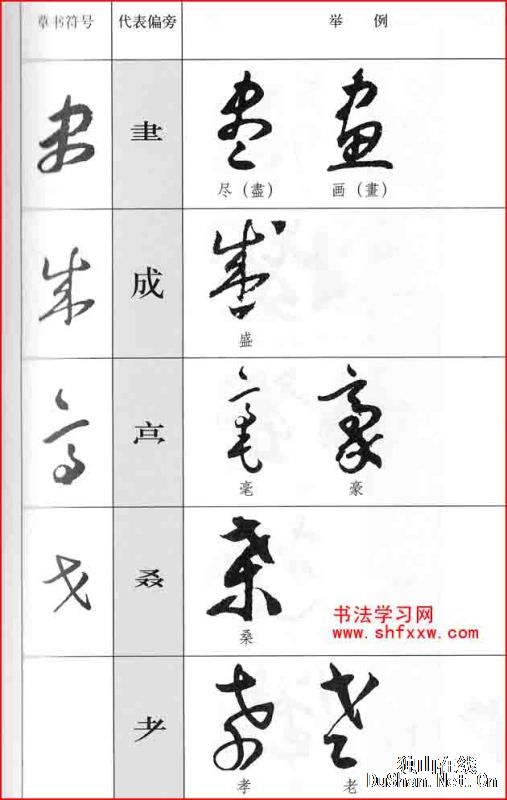 草书符号 代表偏旁 举例
尽（盡） 画（畫）
成
盛
毫 豪
叒
桑
书法学习网
www.shfxxw.com
耂
孝 老
独山在线
DuShan.Net.Cn